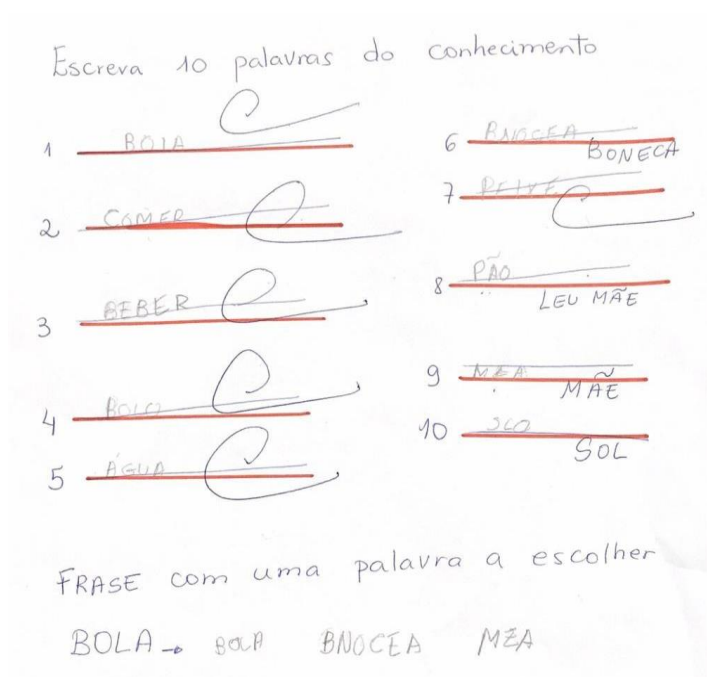 Escreva 10 palavras do conhecimento
1 BOLA
2 COMER
3 BEBER
4 BOLO
5 ÁGUA
6 BNOCEA
BONECA
7 PEIXE
8 PÃO
LEU MÃE
9 MEA
MÃE
10 SLO
SOL
FRASE com uma palavra a escolher
BOLA → BOLA BNOCEA MEA